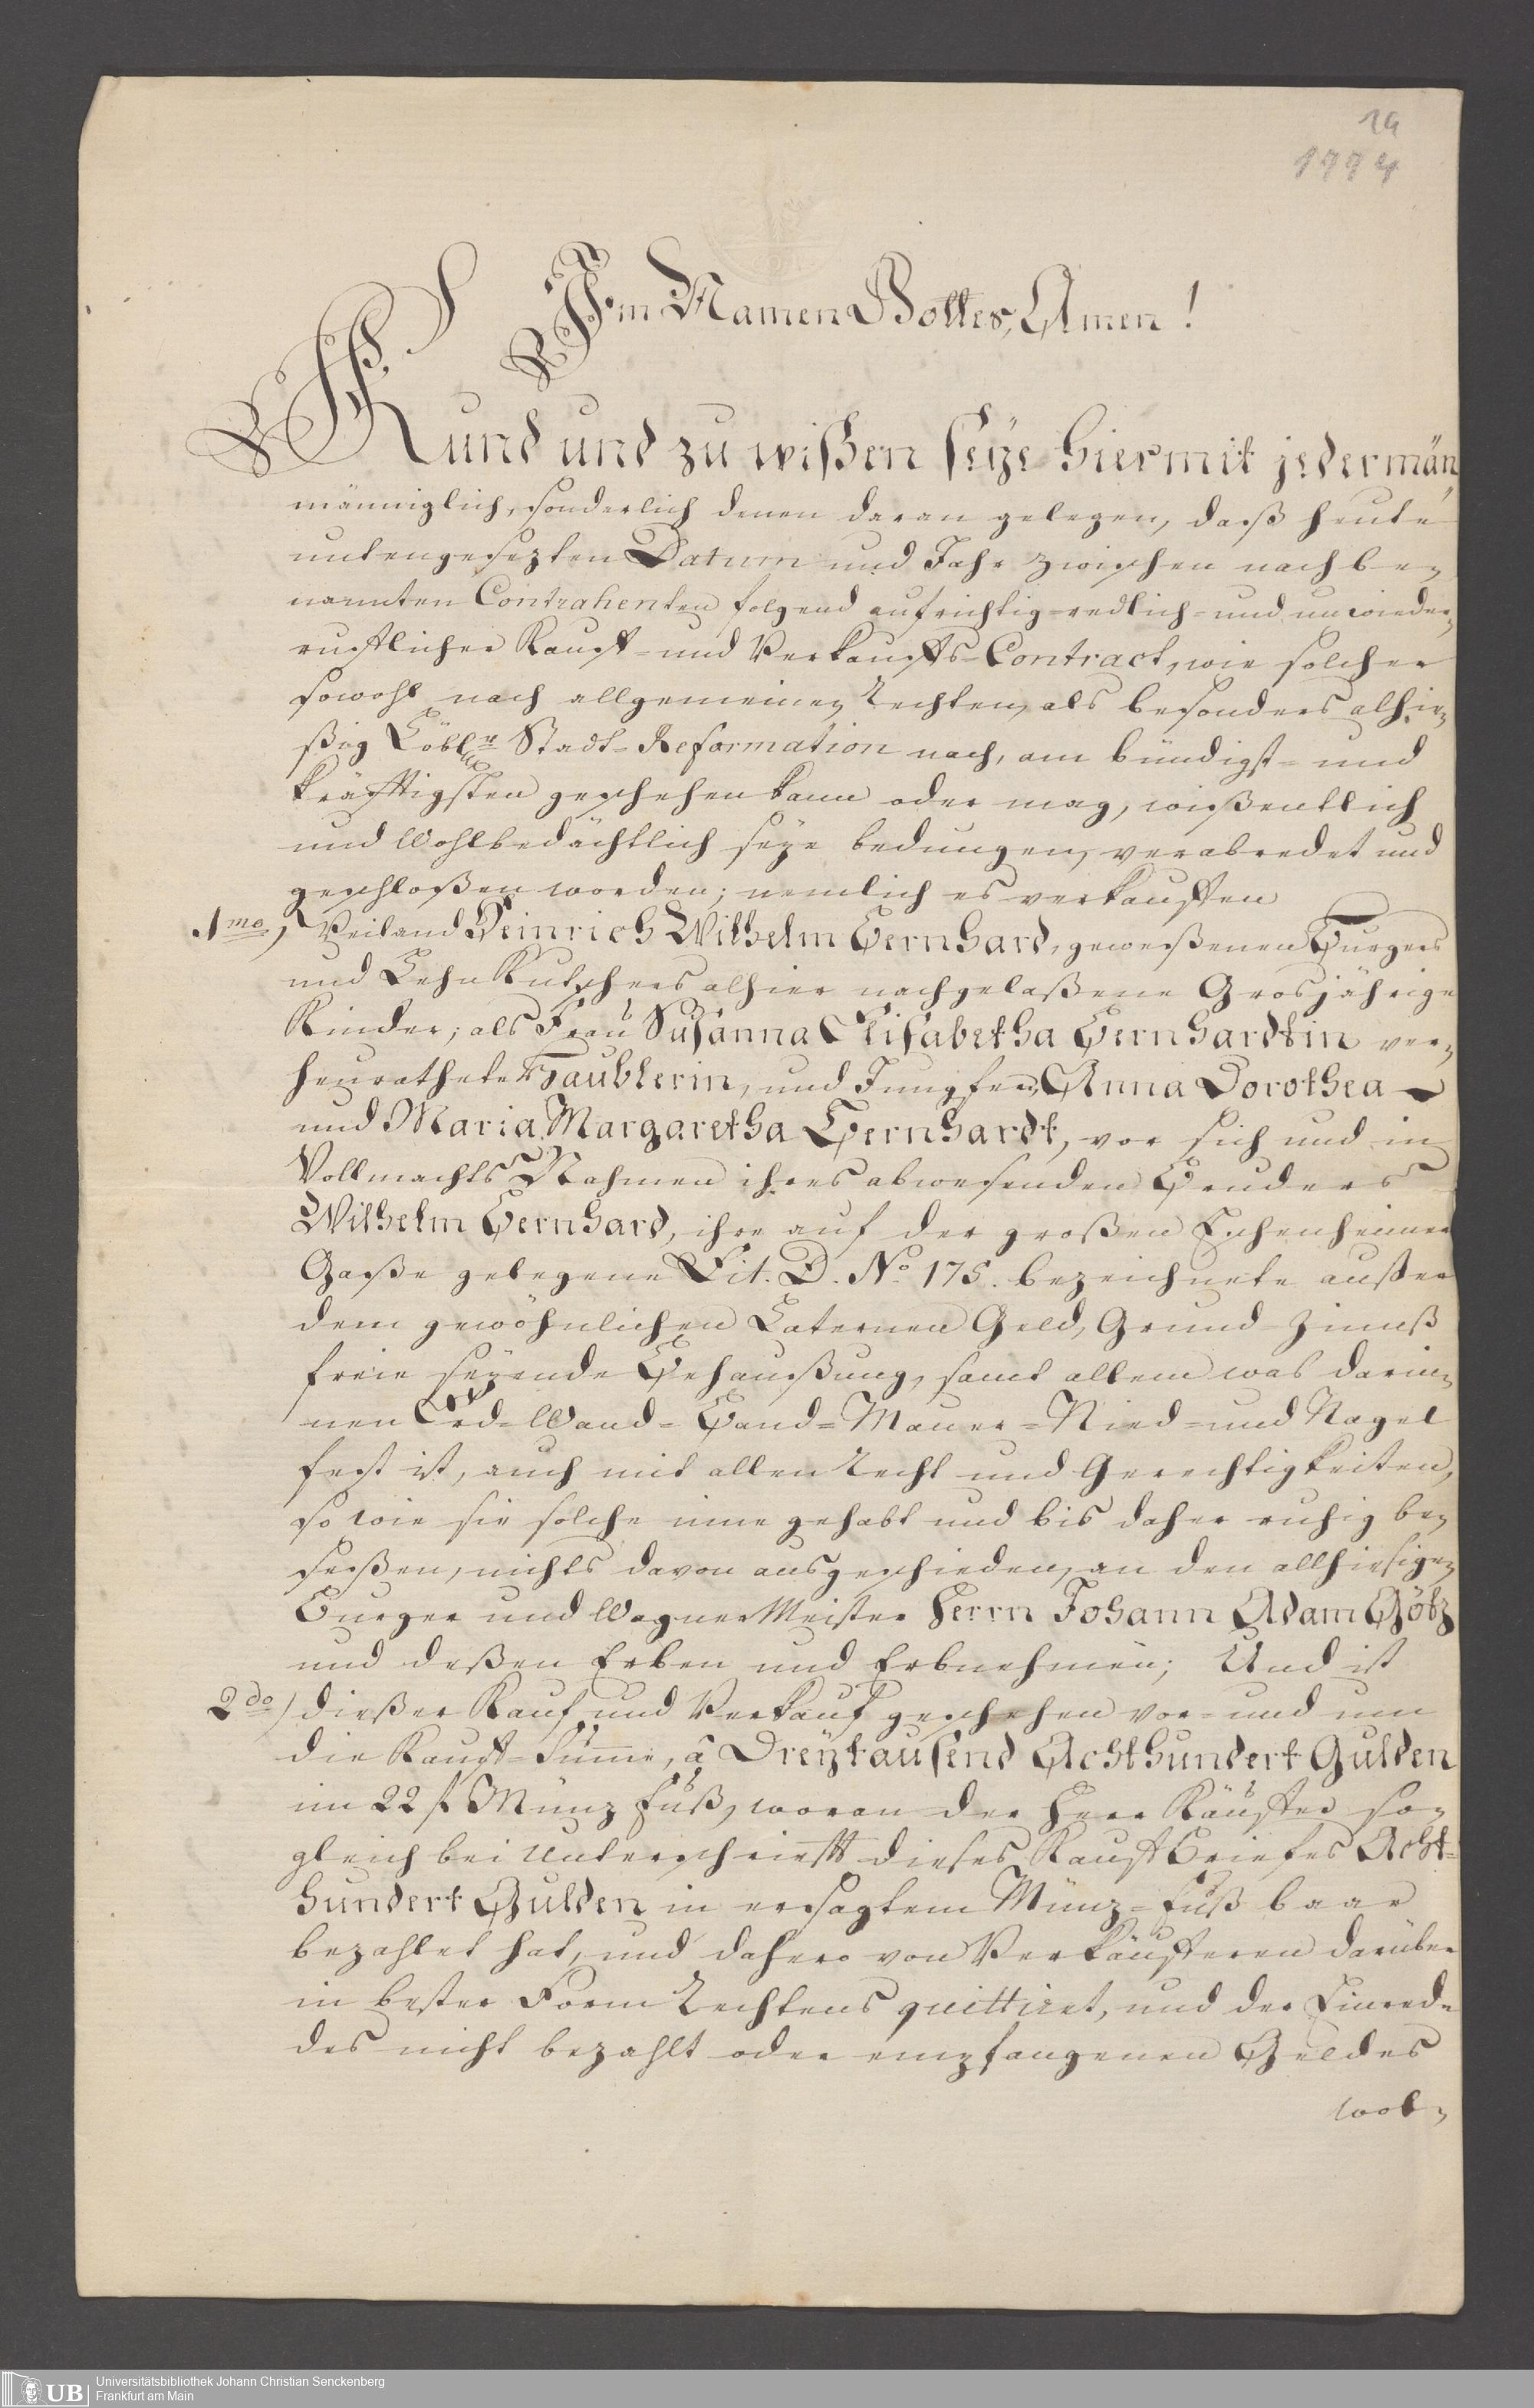 19
1774
Im Namen Gottes, Amen!
Kund und zu wißen seÿe hiermit jedermän
männiglich, sonderlich denen daran gelegen, daß heute
untengesezten Datum und Jahr zwischen nachbe-
nannten Contrahenten folgend aufrichtig-redlich- und unwieder-
rufflicher Kauff- und Verkauffs-Contract, wie solcher
sowohl nach allgemeinen Rechten, als besonders alhie-
ßig Löblr Stadt-Reformation nach, am bündigst- und
kräfftigsten geschehen kann oder mag, wißentlich
und Wohlbedächtlich seÿe bedungen, verabredet und
geschloßen worden; nemlich es verkauffen
1mo) Weiland Heinrich Wilhelm Bernhard, geweßenen Burgers
und Lehn Kutschers alhier nachgelaßene Grosjährige
Kinder; als Frau Susanna Elisabetha Bernhardtin ver-
heurathete Taublerin, und Jungfern Anna Dorothea
und Maria Margaretha Bernhardt, vor sich und in
Vollmachts Nahmen ihres abwesenden Bruders
Wilhelm Bernhard, ihre auf der großen Eschenheimer
Gaße gelegene Lit. D. No 175. bezeichnete außer
dem gewöhnlichen Laternen Geld, Grund-Zinnß
freie seÿende Behaußung, samt allem was darin-
nen Erd-Wand-Band-Mauer-Nied-und Nagel
fest ist, auch mit allen Recht und Gerechtigkeiten,
so wie sie solche inne gehabt und bis daher ruhig be-
seßen, nichts davon ausgeschieden, an den allhiesigen
Burger und Wagner Meister Herrn Johann Adam Götz
und deßen Erben und Erbnehmen; Und ist
2do) dießer Kauf und Verkauf geschehen vor- und um
die Kauff-Summe, â Dreÿtausend Achthundert Gulden
im 22 f Münz Fuß, woran der Herr Käuffer so-
gleich bei Unterschriefft dieses Kauff Briefes Acht-
hundert Gulden in ersagtem Münz-Fuß baar
bezahlet hat, und dahero von Verkäufferen darüber
in bester Form Rechtens quittiret, und der Einrede
des nicht bezahlt oder empfangenen Geldes
wol-
UB Universitätsbibliothek Johann Christian Senckenberg
Frankfurt am Main